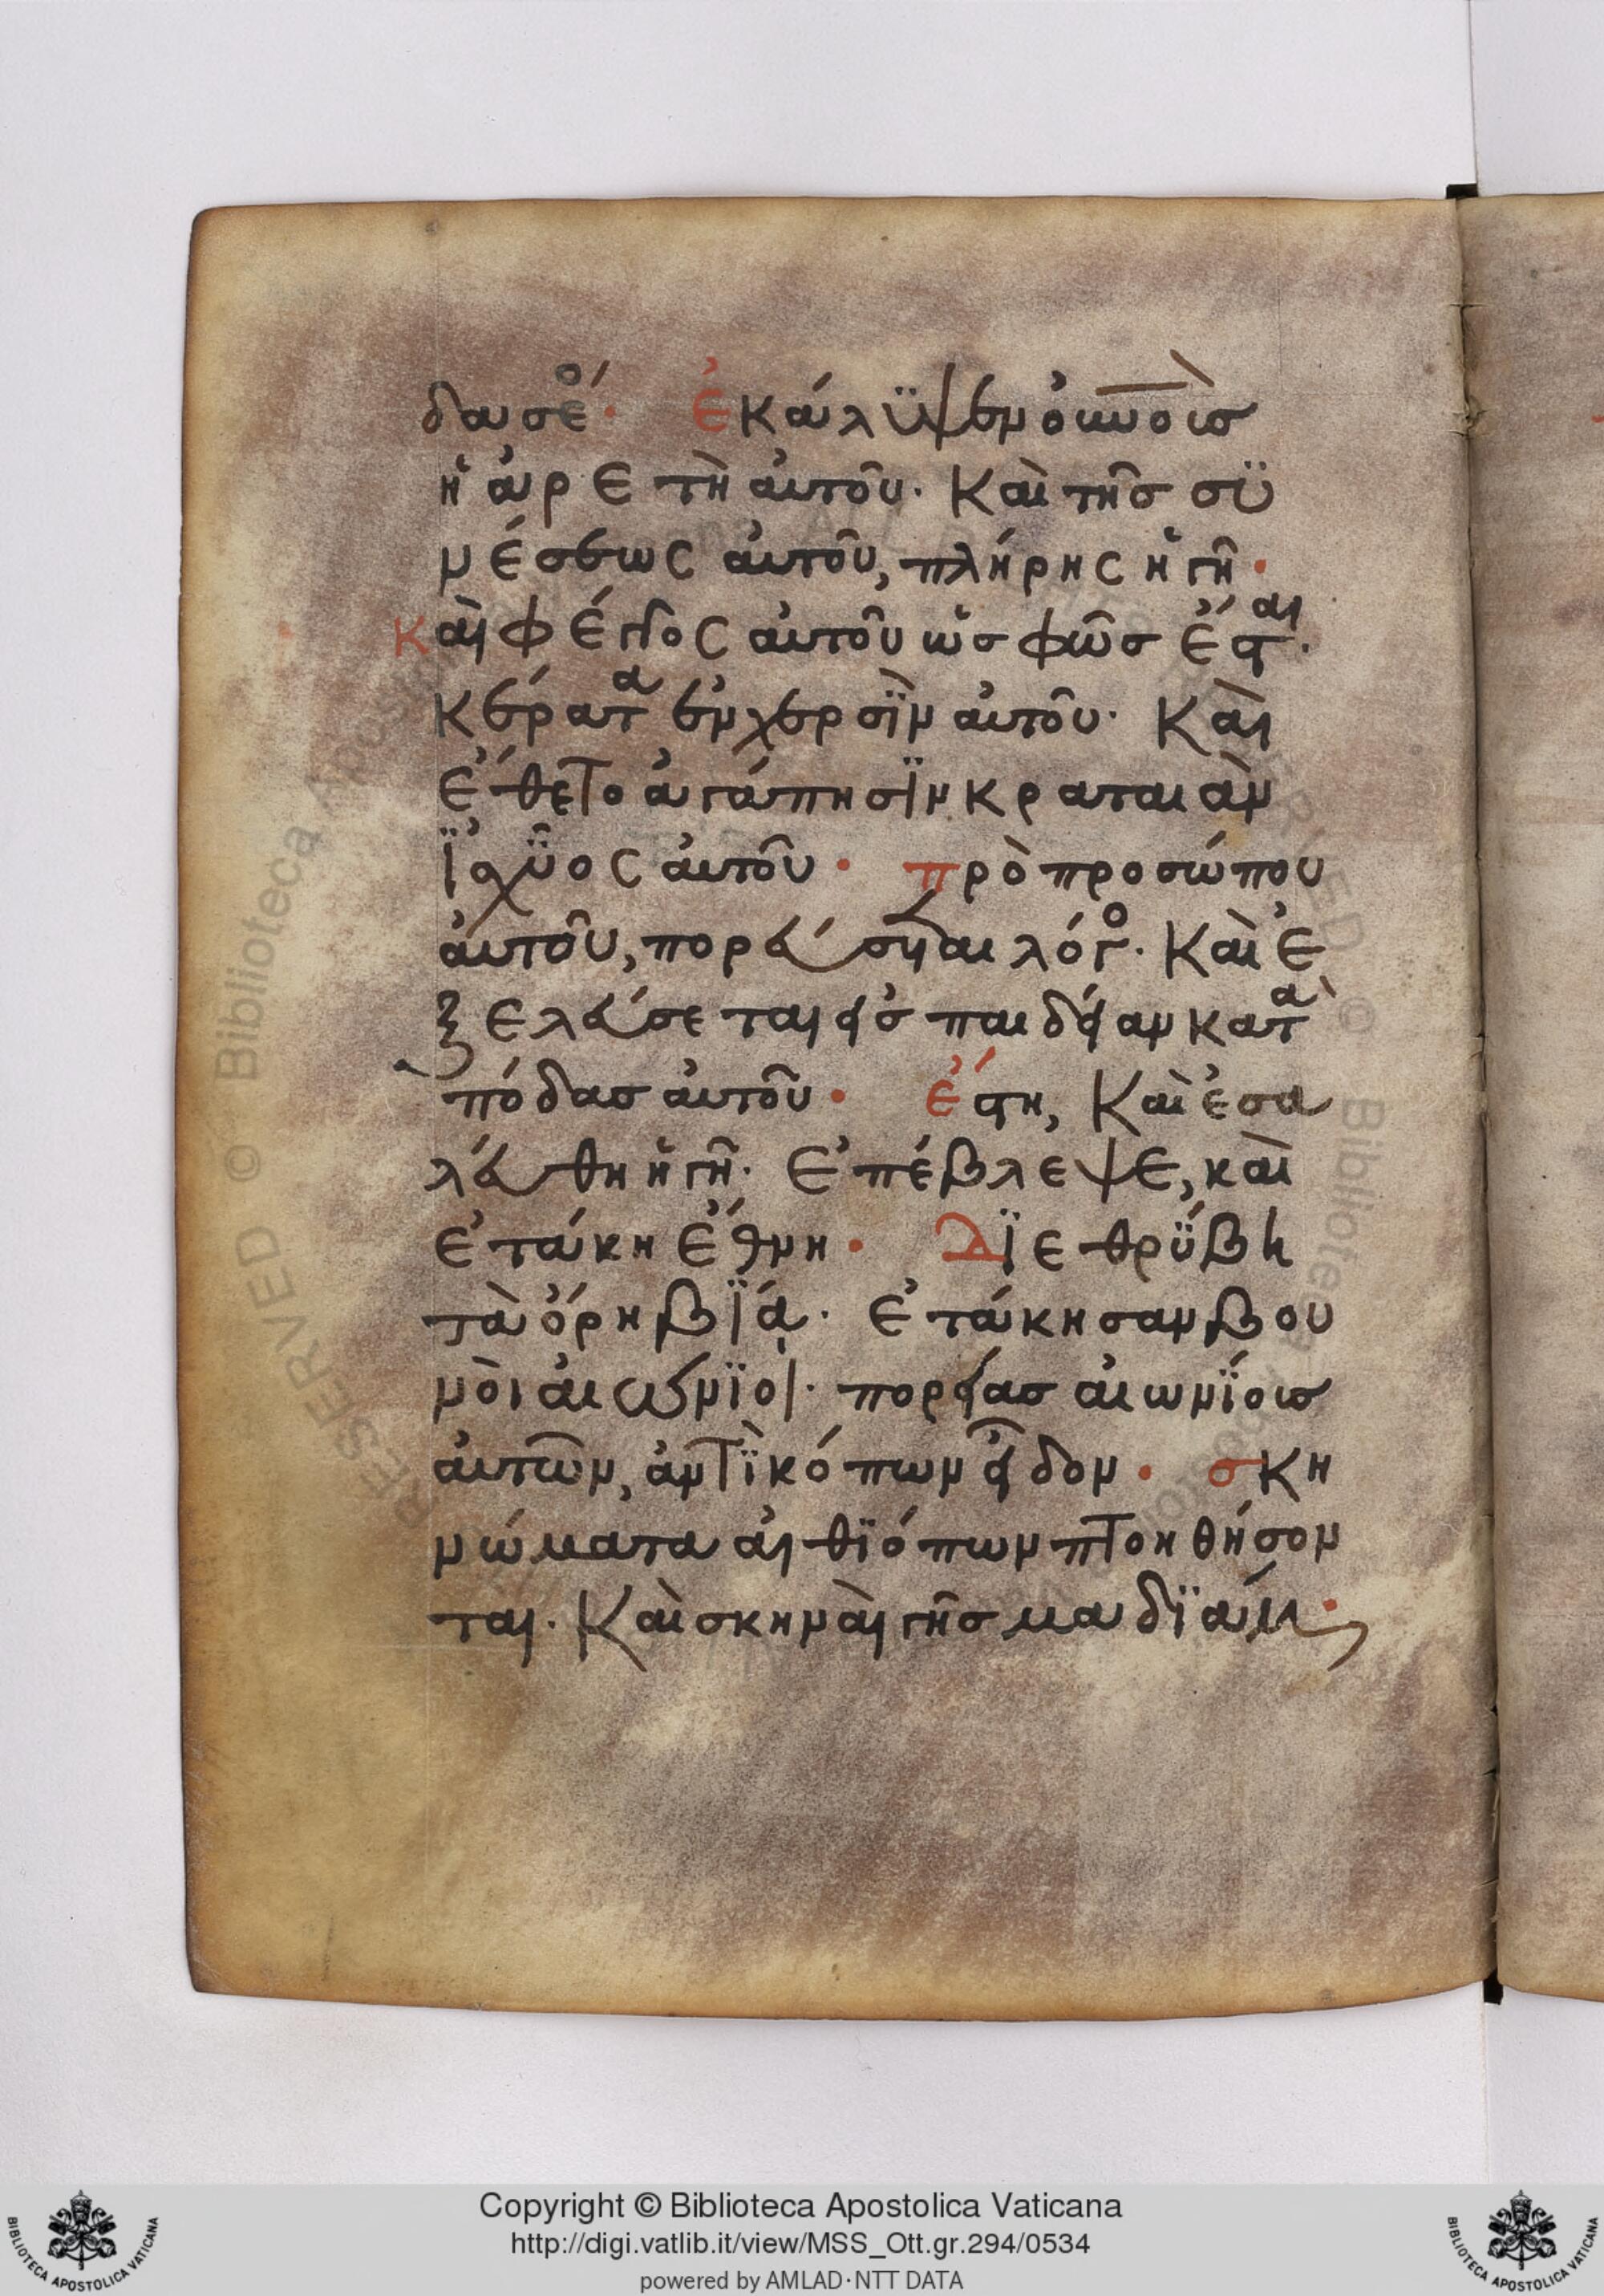 δασέο· Ἐκάλϋψεν οὐνοὺς
ἡ ἀρετὴ αὐτοῦ· Καὶ τῆσ σϋ
νέσεως αὐτοῦ, πλήρης ἡ γῆ·
Καὶ φέγγος αὐτοῦ ὡσ φῶσ ἔσται·
κέρατα ἐν χερσῒν αὐτοῦ· Καὶ
ἔθετο ἀγάπησϊν κραταιὰν
ἰσχϋος αὐτοῦ· πρὸ προσώπου
αὐτοῦ, πορεύσηται λόγο· Καὶ ἐ
ξελεύσεται εἰσ παιδείαν κατὰ
πόδασ αὐτοῦ· ἔστη, Καὶ ἐσα
λεύθη ἡ γῆ· Ἐπέβλεψε, καὶ
ἐτάκη ἔθνη· Δϊεθρύβη
τὰ ὄρη βΐᾳ· Ἐτάκησαν βου
νοὶ αἰώνϊοι· πορείασ αἰωνΐουσ
αὐτῶν, ἀντῒ κόπων εἶδον· σκη
νώματα αἰθϊόπων πτοηθήσον
ται· Καὶ σκηναὶ γῆσ μαδϊάμ·
Copyright © Biblioteca Apostolica Vaticana
http://digi.vatlib.it/view/MSS_Ott.gr.294/0534
powered by AMLAD·NTT DATA